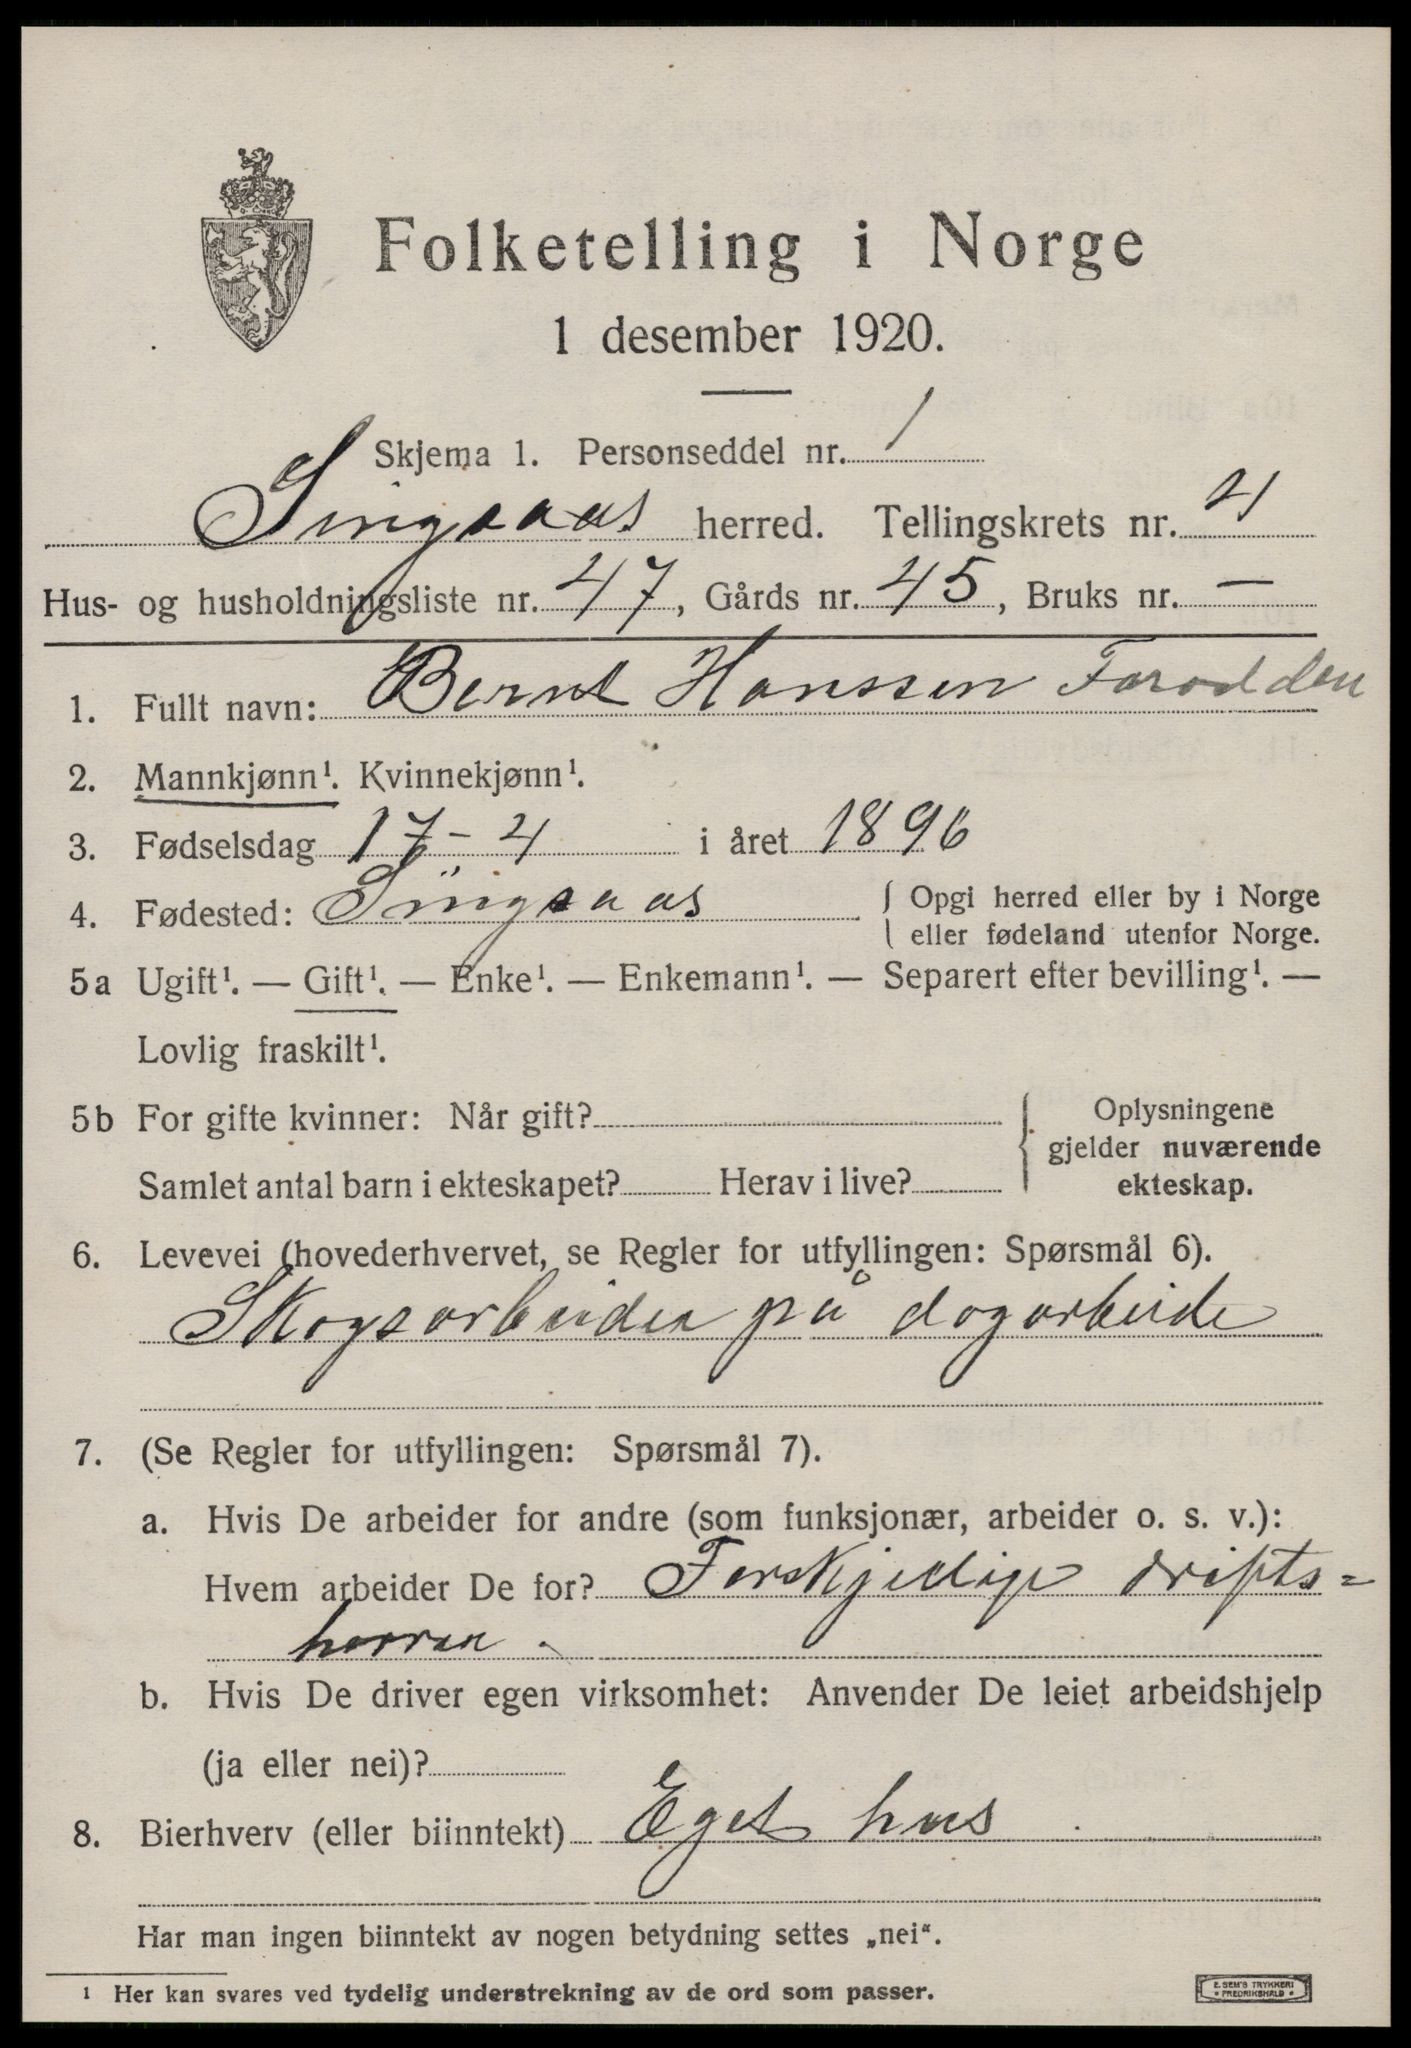 Folketelling i Norge
1 desember 1920.
Skjema 1. Personseddel nr. 1
Singsaas herred. Tellingskrets nr. 4
Hus- og husholdningsliste nr. 47, Gårds nr. 45, Bruks nr. —
1. Fullt navn: Bernt Hanssen Forodden
2. Mannkjønn¹. Kvinnekjønn¹.
3. Fødselsdag 17-4 i året 1896
4. Fødested: Singsaas { Opgi herred eller by i Norge
eller fødeland utenfor Norge.
5a Ugift¹. — Gift¹. — Enke¹. — Enkemann¹. — Separert efter bevilling¹. —
Lovlig fraskilt¹.
5b For gifte kvinner: Når gift? { Oplysningene
gjelder nuværende
Samlet antal barn i ekteskapet? Herav i live? ekteskap.
6. Levevei (hovederhvervet, se Regler for utfyllingen: Spørsmål 6).
Skogsarbeider på dagarbeide
7. (Se Regler for utfyllingen: Spørsmål 7).
a. Hvis De arbeider for andre (som funksjonær, arbeider o. s. v.):
Hvem arbeider De for? Forskjedige drifts=
herrer.
b. Hvis De driver egen virksomhet: Anvender De leiet arbeidshjelp
(ja eller nei)?
8. Bierhverv (eller biinntekt) Eget hus.
Har man ingen biinntekt av nogen betydning settes „nei".
¹ Her kan svares ved tydelig understrekning av de ord som passer.
E. SEM'S TRYKKERI
FREDRIKSHALD